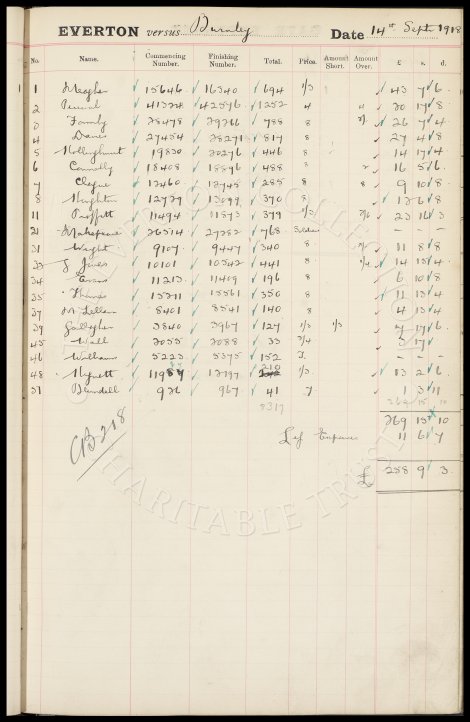 EVERTON versus Burnley Date 14th Sept 1918
No. Name. Commencing Number. Finishing Number. Total. Price. Amount Short. Amount Over. £ s. d.
1 1 Meagher 15646 16340 694 1/3 43 7 6
2 Percival 41324 42576 1252 4 4 20 17 8
3 Formby 28478 29266 788 8 26 7 4
4 Davies 27454 28271 817 8 27 4 8
5 Mollyhurst 19830 20276 446 8 14 17 4
6 Connolly 18408 18896 488 8 16 5 6
7 Clegue 12460 12745 285 8 8 9 10 8
8 Houghton 12729 13099 370 8 12 6 8
11 Proffitt 11494 11873 379 1/3 23 16 3
21 26514 27282 768 - -
31 Wright 9107 9447 340 8 11 8 8
33 J Jones 10101 10542 441 8 14 13 4
34 Evans 11213 11409 196 8 6 10 8
35 Thomas 15211 15561 350 8 11 13 4
37 McLellan 8401 8541 140 8 4 13 4
39 Gallagher 3840 3967 127 1/3 1/3 7 17 6
45 Wall 2055 2088 33 3 17
46 Williams 5223 5375 152 - - -
48 Hignett 11987 12197 210 1/3 13 2 6
51 Blundell 926 967 41 7 1 3 11
8317 264 15 10
269 15 10
Less Expenses 11 6 7
£ 258 9 3
CB 218
CHARITABLE TRUST